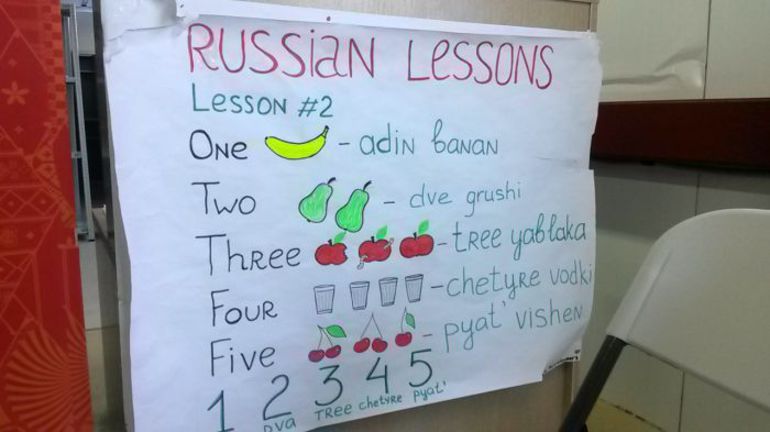 RUSSiAN LeSSONS
LeSSON #2
ONe - adiN baNaN
Two - dve grushi
ThRee - tRee yablaka
FouR - chetyRe vodki
Five - pyat' vishen
1 2 3 4 5
DVA TRee chetyRe pyat'